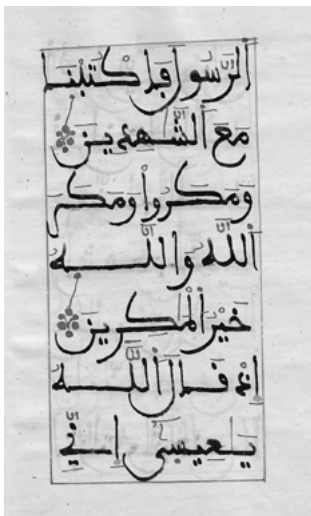 الرَّسُولَ فَاكْتُبْنَا
مَعَ الشَّٰهِدِينَ
وَمَكَرُوا۟ وَمَكَرَ
اللَّهُ وَاللَّهُ
خَيْرُ الْمَٰكِرِينَ
إِذْ قَالَ اللَّهُ
يَٰعِيسَىٰٓ إِنِّي